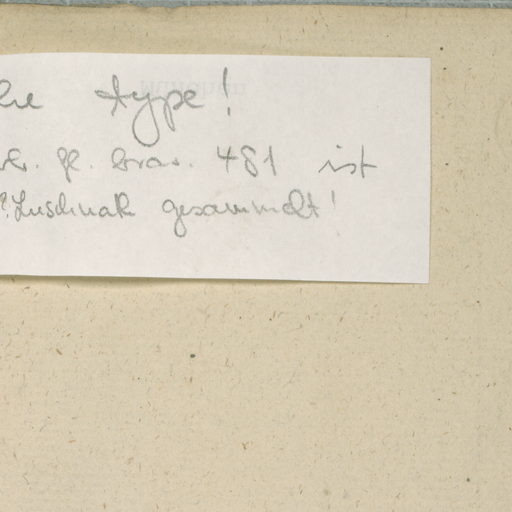 type!
fl. bras. 481 ist
Luschnath gesammelt!